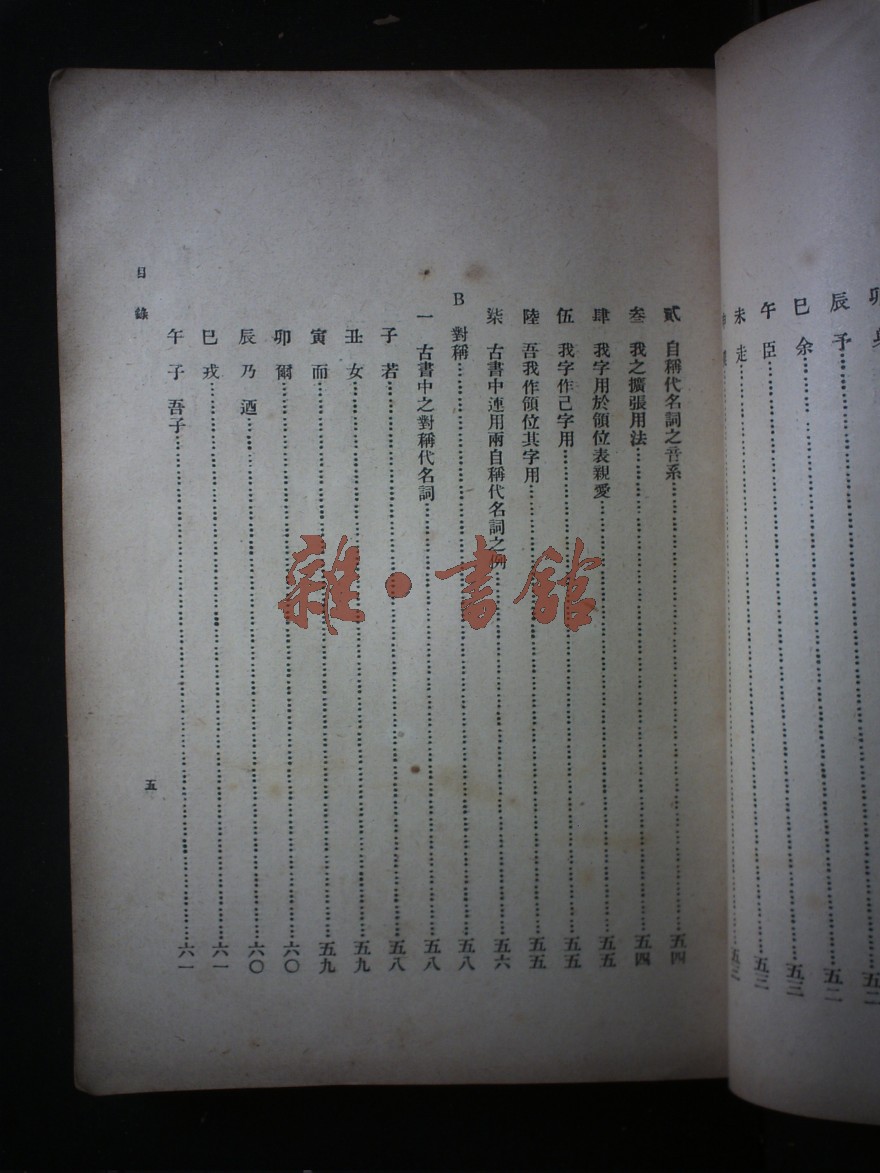 辰 予……五二
巳 余……五三
午 臣……五三
未 走……五三
貳 自稱代名詞之音系……五四
叁 我之擴張用法……五四
肆 我字用於領位表親愛……五五
伍 我字作己字用……五五
陸 吾我作領位其字用……五五
柒 古書中連用兩自稱代名詞之例……五六
B 對稱……五八
一 古書中之對稱代名詞……五八
子 若……五八
丑 女……五九
寅 而……五九
卯 爾……六〇
辰 乃 迺……六〇
巳 戎……六一
午 子 吾子……六一
目錄
五
雜·書館